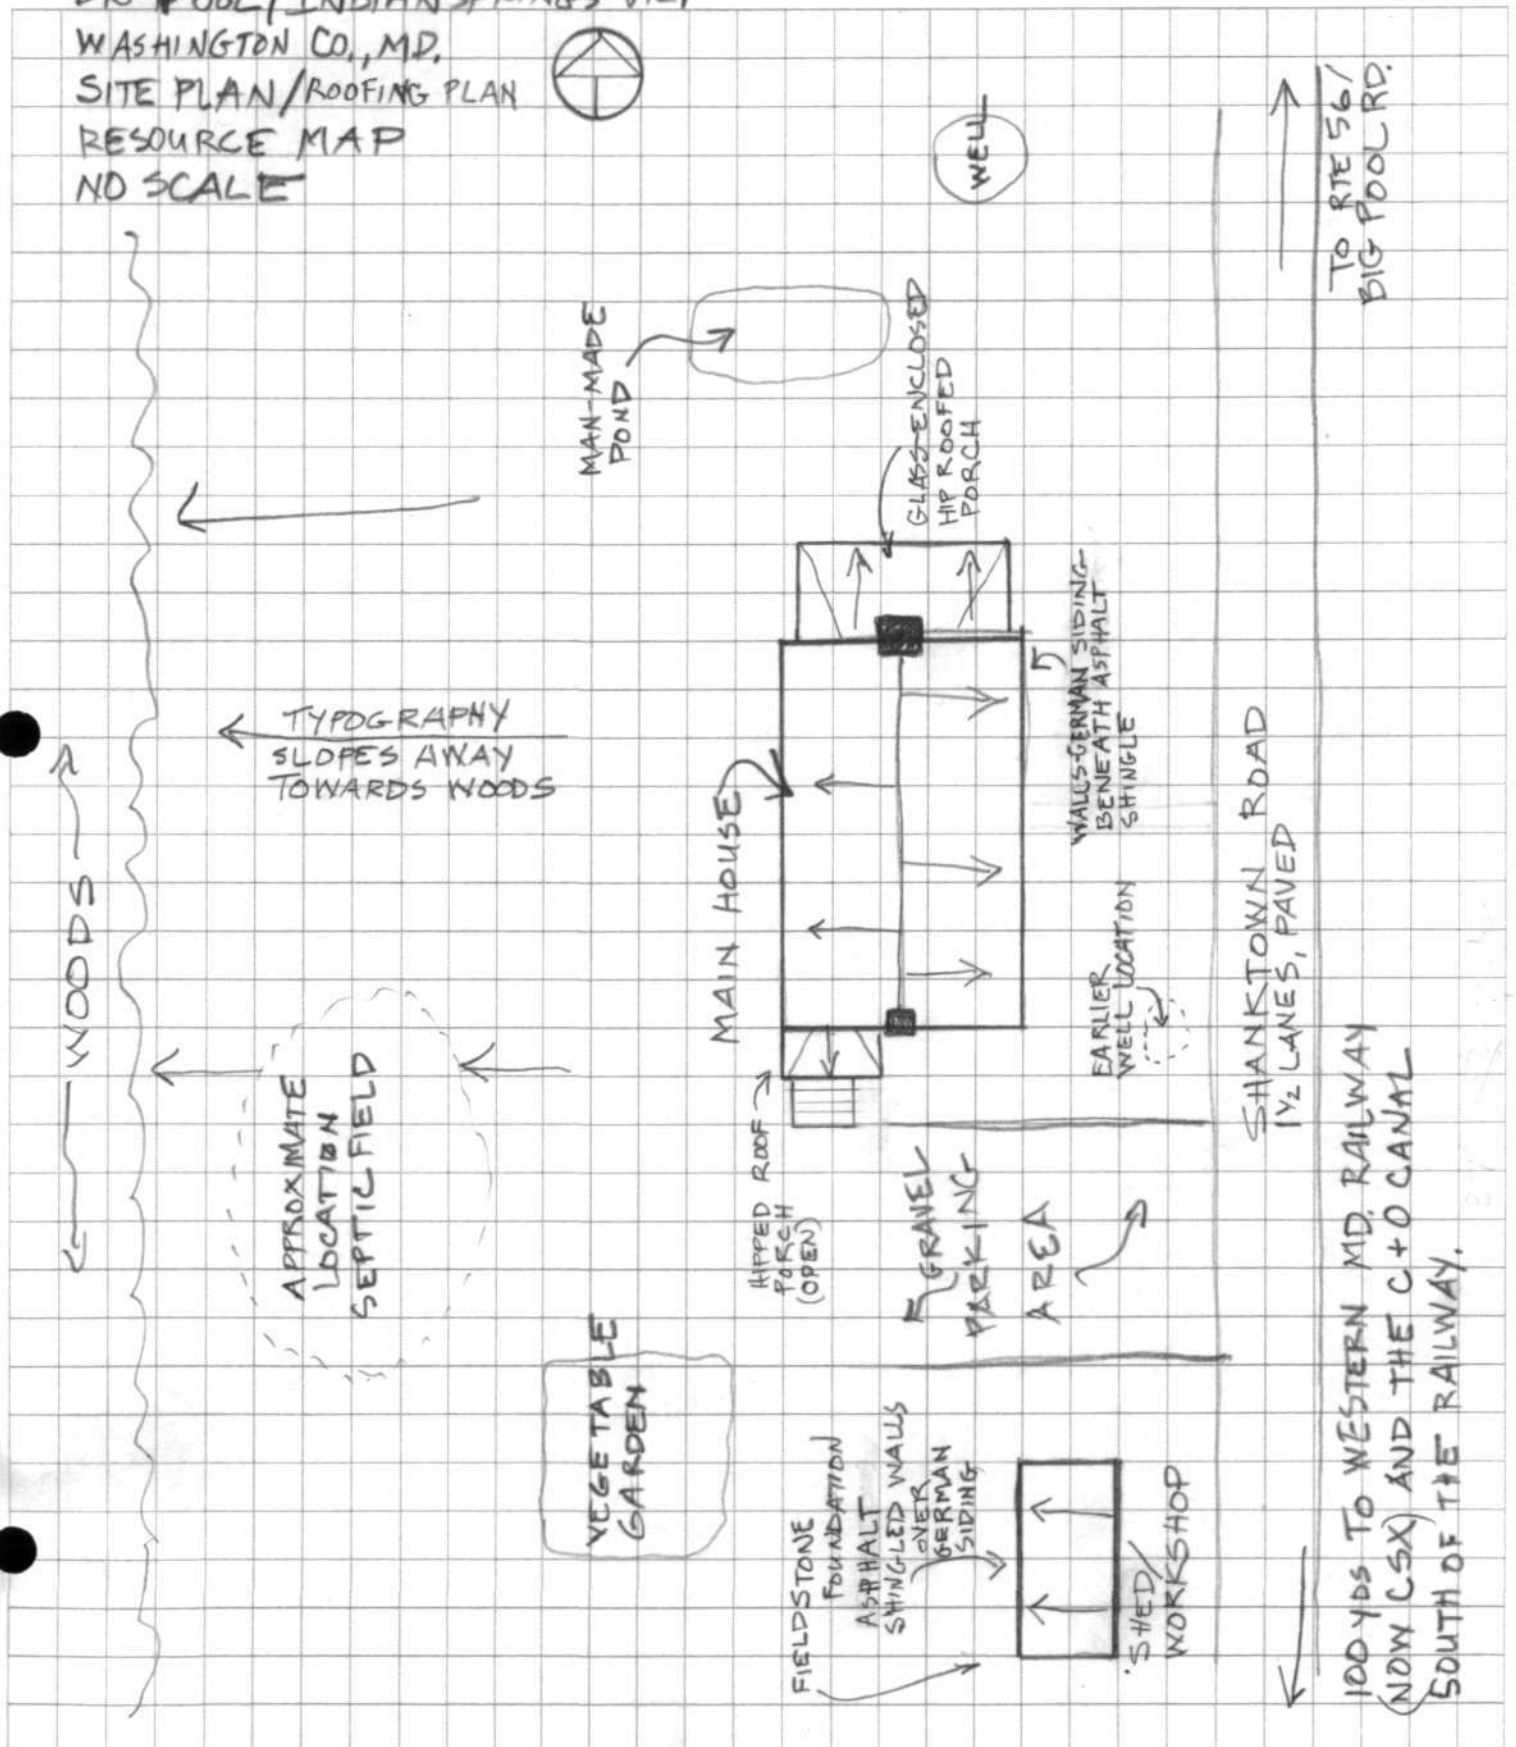 WASHINGTON CO., MD.
SITE PLAN/ROOFING PLAN
RESOURCE MAP
NO SCALE
WELL
TO RTE 56/
BIG POOL RD.
MAN-MADE
POND
GLASS-ENCLOSED
HIP ROOFED
PORCH
WOODS
TYPOGRAPHY
SLOPES AWAY
TOWARDS WOODS
MAIN HOUSE
WALLS-GERMAN SIDING
BENEATH ASPHALT
SHINGLE
EARLIER
WELL LOCATION
SHANKTOWN ROAD
1 1/2 LANES, PAVED
APPROXIMATE
LOCATION
SEPTIC FIELD
HIPPED ROOF
PORCH
(OPEN)
GRAVEL
PARKING
AREA
VEGETABLE
GARDEN
FIELDSTONE
FOUNDATION
ASPHALT
SHINGLED WALLS
OVER
GERMAN
SIDING
SHED/
WORKSHOP
100 YDS TO WESTERN MD. RAILWAY
(NOW CSX) AND THE C+O CANAL
SOUTH OF THE RAILWAY.